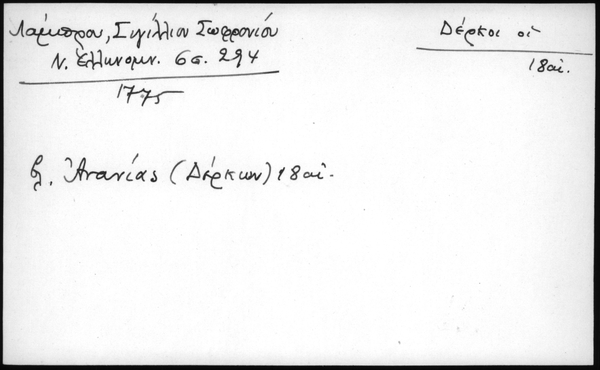 Λάμπρου, Σιγίλλιον Σωφρονίου
Ν. Ἑλληνομν. 6 σ. 294
1775
Δέρκοι οἱ
18 αἰ.
βλ. Ἀνανίας (Δέρκων) 18 αἰ.